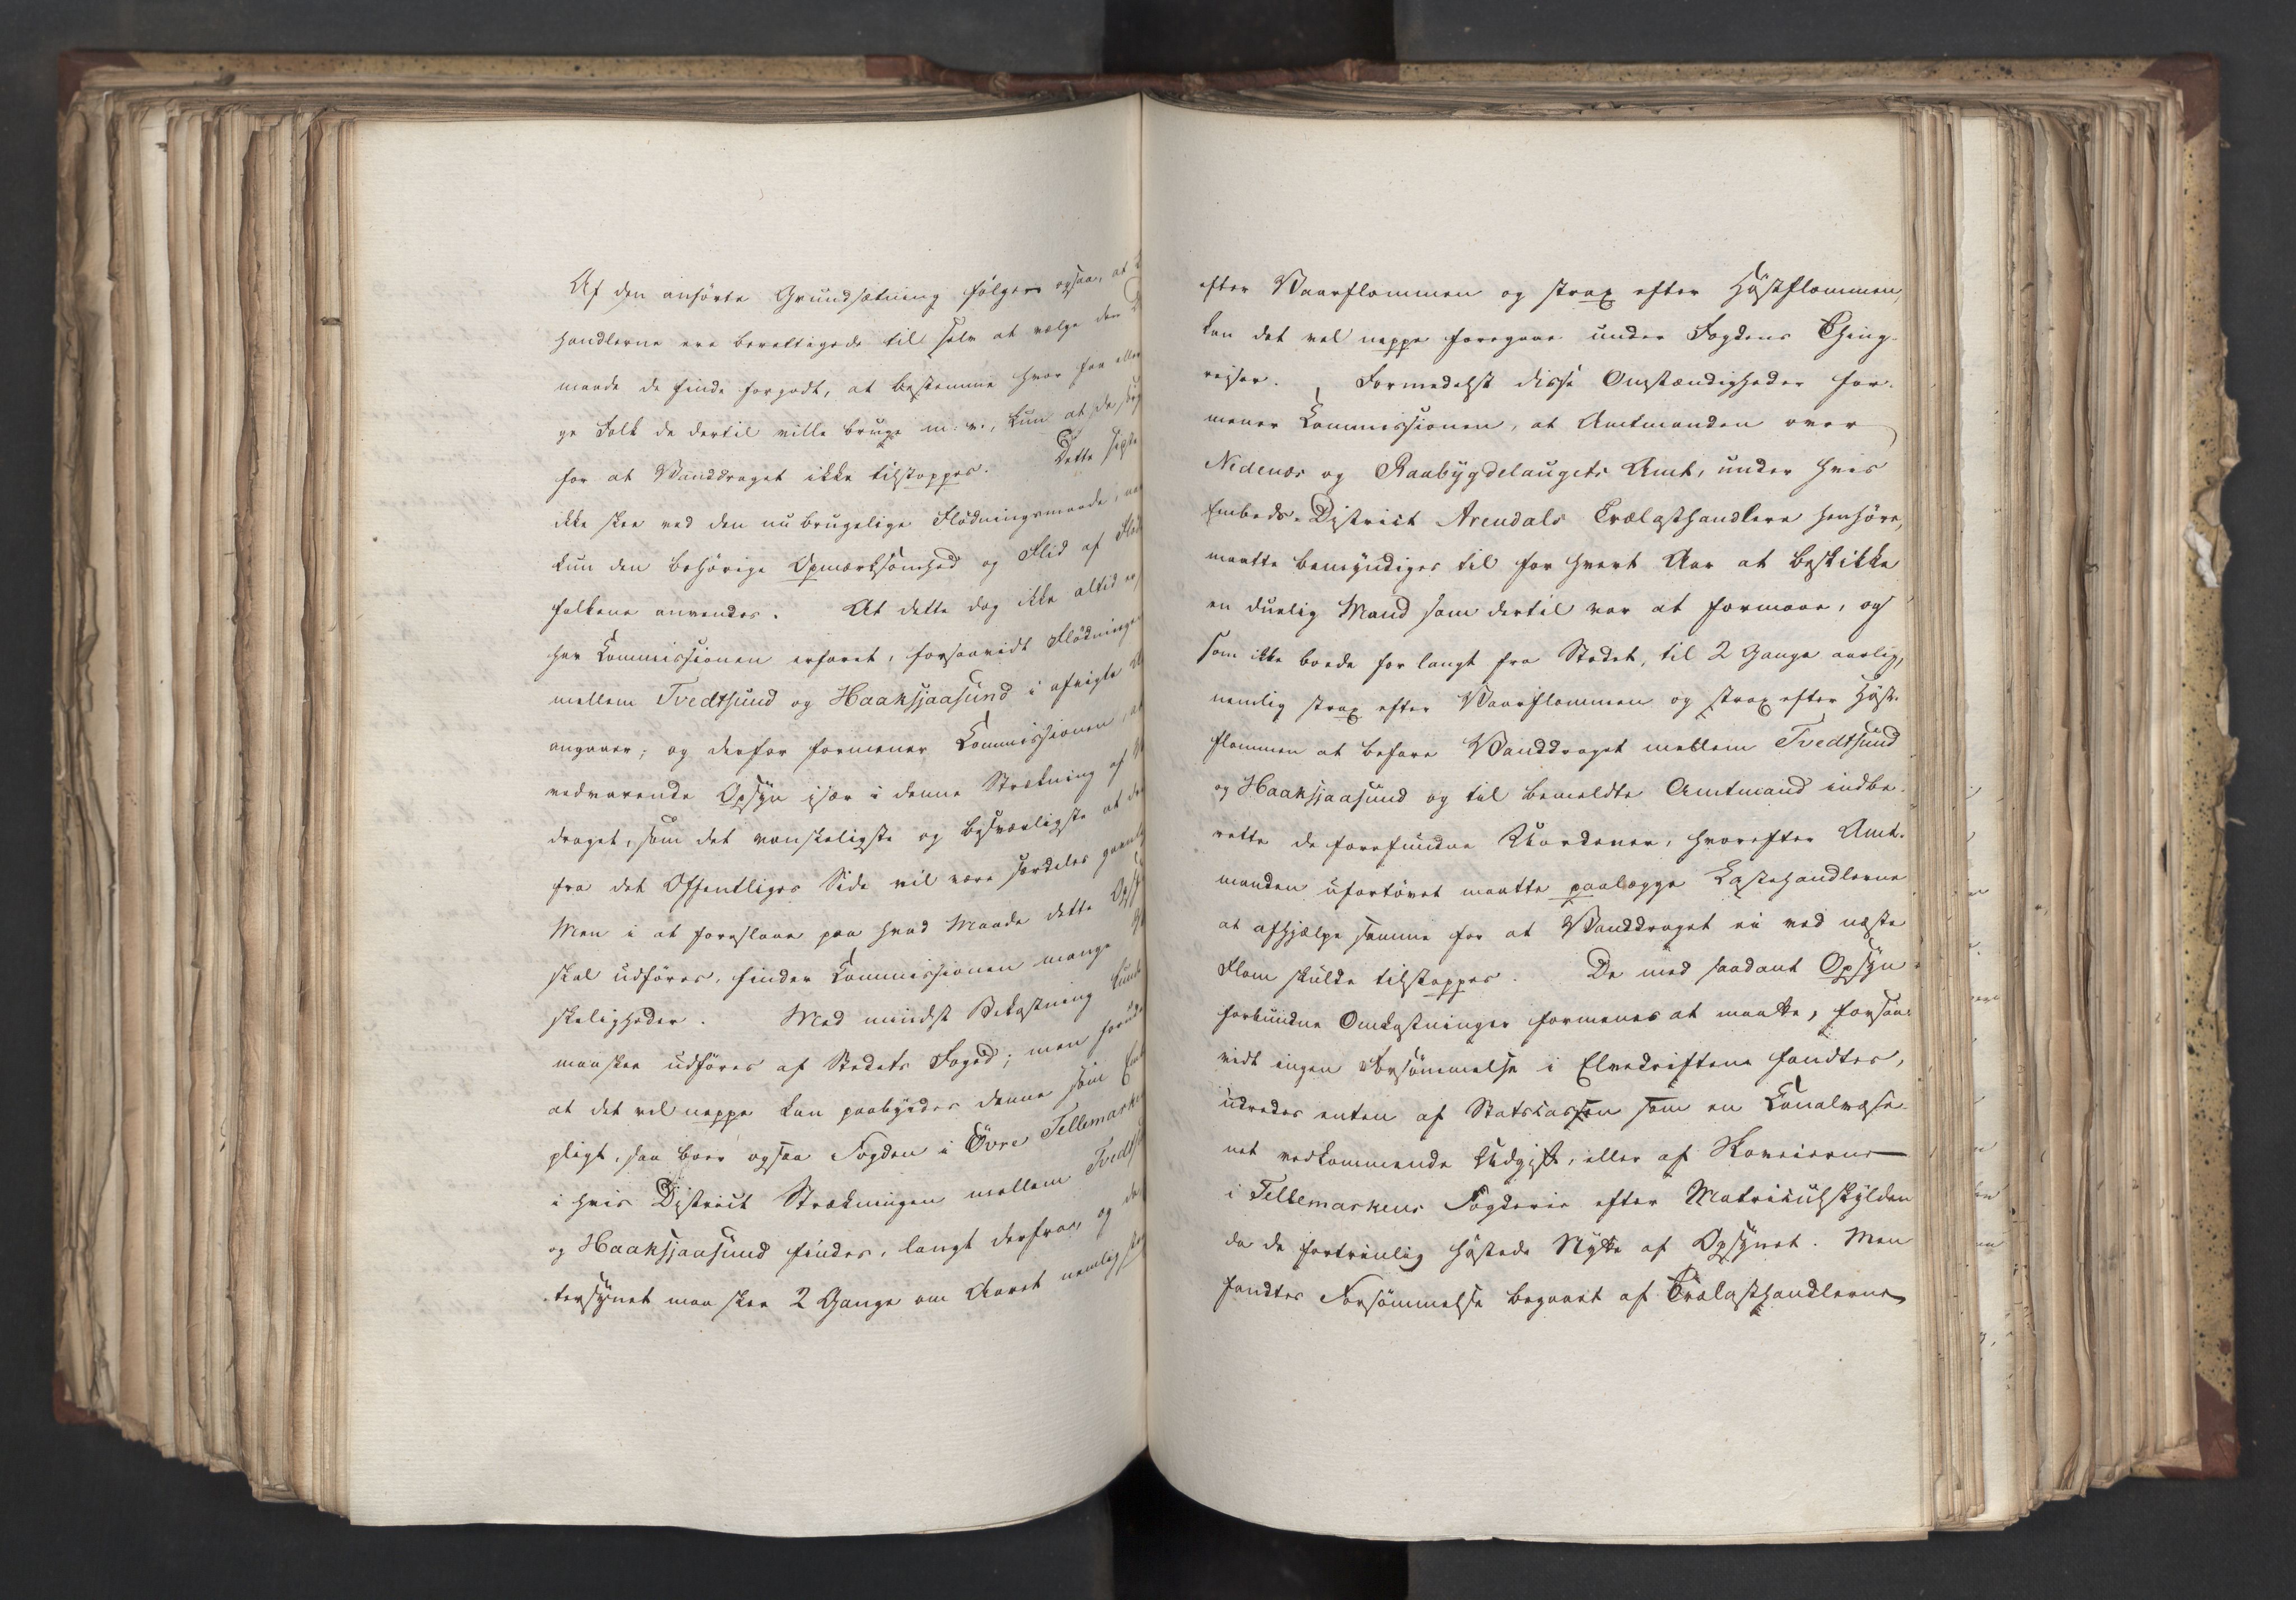 Af den anførte Grundsætning følger ogsaa, at
handlerne ere berettigede til selv at vælge den
maade de finde forgodt, at bestemme hvor faa eller
ge Folk de dertil ville bruge m: v:, kun at de
for at Vanddraget ikke tilstoppes. Dette
ikke skee ved den nu brugelige Flödningsmaade,
kun den behörige Opmærksomhed og Flid af
folkene anvendes. At dette dog ikke altid
har Commissionen erfaret, forsaavidt Flödningen
mellem Tvedtsund og Haaksjaasund i afvigte
angaaer; og derfor formener Commissionen, at
vedvarende Opsyn især i denne Strækning af
draget, som det vanskeligste og besværligste at
fra det Offentliges Side vil være særdeles
Men i at foreslaae paa hvad Maade dette
skal udföres, finder Commissionen mange
skeligheder. Med mindst Bekostning kunde
maaskee udföres af Stedets Foged; men
at det vel neppe kan paabydes denne som
pligt, saa boer ogsaa Fogden i Övre Tellemarken
i hvis District Strækningen mellem
og Haaksjaasund findes, langt derfra, og
tersynet maa skee 2 Gange om Aaret nemlig
efter Vaarflommen og strax efter Höstflommen,
kan det vel neppe foregaae under Fogdens Thing-
rejser. Formedelst disse Omstændigheder for-
mener Commissionen, at Amtmanden over
Nedenæs og Raabygdelaugets Amt, under hvis
Embeds-District Arendals Trælasthandlere henhöre,
maatte bemyndiges til for hvert Aar at beskikke
en duelig Mand som dertil var at formaae, og
som ikke boede for langt fra Stedet, til 2 Gange aarlig,
nemlig strax efter Vaarflommen og strax efter Höst-
flommen at befare Vanddraget mellem Tvedtsund
og Haaksjaasund og til bemeldte Amtmand indbe-
rette de forefundne Uordener, hvorefter Amt-
manden ufortövet maatte paalægge Lasthandlerne
at afhjælpe samme for at Vanddraget ei ved næste
Flom skulde tilstoppes. De med saadant Opsyn
forbundne Omkostninger formenes at maatte, forsaa-
vidt ingen Forsömmelse i Elvedriftene fandtes,
udredes enten af Statscassen som en Canalvæse-
net vedkommende Udgift, eller af Skoveierne
i Tellemarkens Fogderie efter Matriculskylden
da de fortrinlig höstede Nytte af Opsynet. Men
fandtes Forsömmelse begaaet af Trælasthandlerne